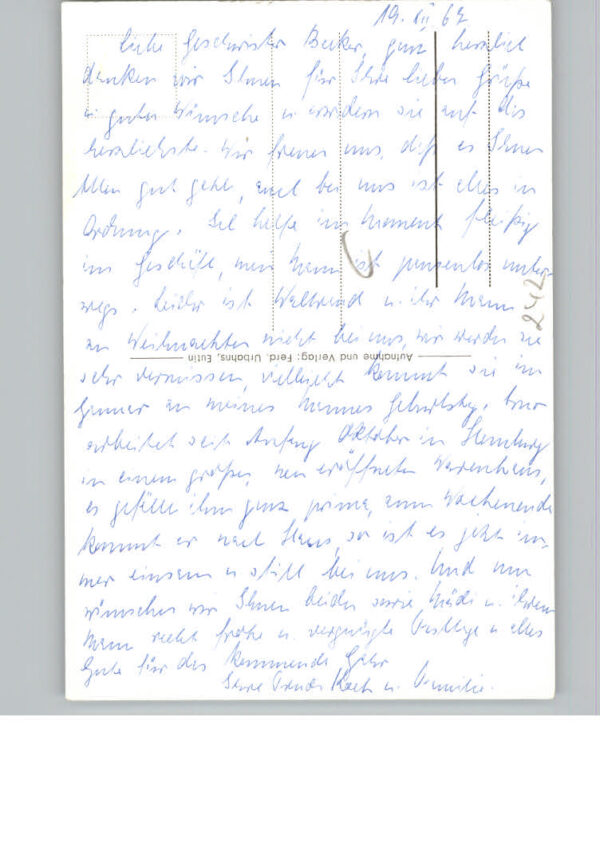 19. XII. 62
Liebe Geschwister Becker, ganz herzlich
danken wir Ihnen für Ihre lieben Grüße
u. guten Wünsche u. erwidern sie auf das
herzlichste. Wir freuen uns, daß es Ihnen
Allen gut geht, auch bei uns ist alles in
Ordnung. Ich helfe im Moment fleißig
im Geschäft, mein Mann ist pausenlos unter-
wegs. Leider ist Waltraud u. ihr Mann
an Weihnachten nicht bei uns, wir werden sie
Aufnahme und Verlag: Ferd. Urbahns, Eutin
sehr vermissen, vielleicht kommt sie im
Januar an meines Mannes Geburtstag.
arbeitet seit Anfang Oktober in Hamburg
in einem großen, neu eröffneten Warenhaus,
es gefällt ihm ganz prima, zum Wochenende
kommt er nach Haus, so ist es jetzt im-
mer einsam u. still bei uns. Und nun
wünschen wir Ihnen beiden sowie Mädi u. ihrem
Mann recht frohe u. vergnügte Festtage u. alles
Gute für das kommende Jahr
Ihre Koch u. Familie.
242